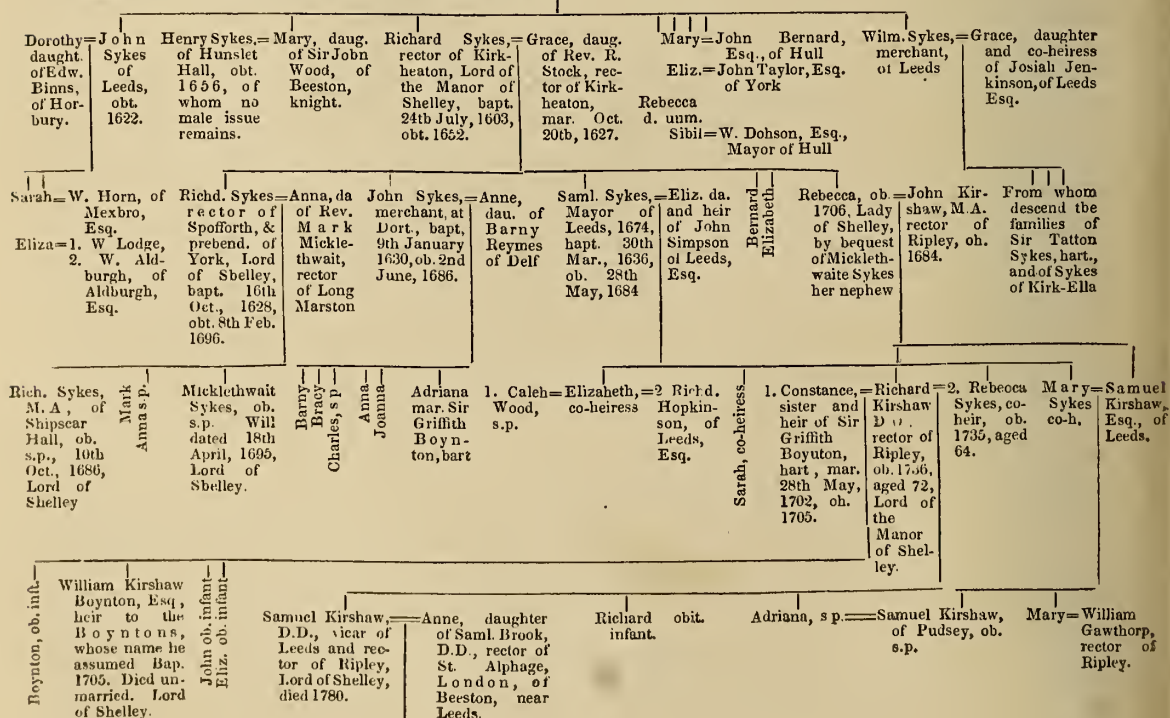 Dorothy=John
daught. Sykes
of Edw. of
Binns, Leeds,
of Hor- obt.
bury. 1622.
Henry Sykes,=
of Hunslet
Hall, obt.
1656, of
whom no
male issue
remains.
Mary, daug.
of Sir John
Wood, of
Beeston,
knight.
Richard Sykes,=
rector of Kirk-
heaton, Lord of
the Manor of
Shelley, bapt.
24th July, 1603,
obt. 1652.
Grace, daug.
of Rev. R.
Stock, rec-
tor of Kirk-
heaton,
mar. Oct.
20tb, 1627.
Mary=John Bernard,
Esq., of Hull
Eliz.=John Taylor, Esq.
of York
Rebecca
d. unm.
Sibil=W. Dohson, Esq.,
Mayor of Hull
Wilm. Sykes,=
merchant,
of Leeds
Grace, daughter
and co-heiress
of Josiah Jen-
kinson, of Leeds
Esq.
Sarah=W. Horn, of
Mexbro,
Esq.
Eliza=1. W Lodge,
2. W. Ald-
burgh, of
Aldburgh,
Esq.
Richd. Sykes=
rector of
Spofforth, &
prebend. of
York, Lord
of Sbelley,
bapt. 16th
Oct., 1628,
obt. 8th Feb.
1696.
Anna, da
of Rev.
Mark
Mickle-
thwait,
rector
of Long
Marston
John Sykes,=
merchant, at
Dort., bapt,
9th January
1630, ob. 2nd
June, 1686.
Anne,
dau. of
Barny
Reymes
of Delf
Saml. Sykes,=
Mayor of
Leeds, 1674,
hapt. 30th
Mar., 1636,
ob. 28th
May, 1684
Eliz. da.
and heir
of John
Simpson
of Leeds,
Esq.
Bernard
Elizabeth
Rebecca, ob.=
1706, Lady
of Shelley,
by bequest
of Mickleth-
waite Sykes
her nephew
John Kir-
shaw, M.A.
rector of
Ripley, ob.
1684.
From whom
descend tbe
families of
Sir Tatton
Sykes, hart.,
and of Sykes
of Kirk-Ella
Rich. Sykes,
M.A, of
Shipscar
Hall, ob.
s.p., 10th
Oct., 1686,
Lord of
Shelley
Mark
Anna s.p.
Micklethwait
Sykes, ob.
s.p. Will
dated 18th
April, 1695,
Lord of
Sbelley.
Barny
Bracy
Charles, s p
Anna
Joanna
Adriana
mar. Sir
Griffith
Boyn-
ton, bart
1. Caleh=
Wood,
s.p.
Elizaheth,=
co-heiress
2 Richd.
Hopkin-
son, of
Leeds,
Esq.
Sarah, co-heiress
1. Constance,=
sister and
heir of Sir
Griffith
Boyuton,
hart, mar.
28th May,
1702, oh.
1705.
Richard=
Kirshaw
rector of
Ripley,
aged 72,
Lord of
the
Manor
of Shel-
ley.
2. Rebecca
Sykes, co-
heir, ob.
1735, aged
64.
Mary=
Sykes
co-h.
Samuel
Kirshaw,
Esq., of
Leeds.
Boynton, ob. inft.
William Kirshaw
Boynton, Esq,
heir to the
Boyntons,
whose name he
assumed Bap.
1705. Died un-
married. Lord
of Shelley.
John ob. infant
Eliz. ob. infant
Samuel Kirshaw,=
D.D., vicar of
Leeds and rec-
tor of Ripley,
Lord of Shelley,
died 1780.
Anne, daughter
of Saml. Brook,
D.D., rector of
St. Alphage,
London, of
Beeston, near
Leeds.
Richard obit.
infant.
Adriana, s p.=
Samuel Kirshaw,
of Pudsey, ob.
s.p.
Mary=William
Gawthorp,
rector of
Ripley.